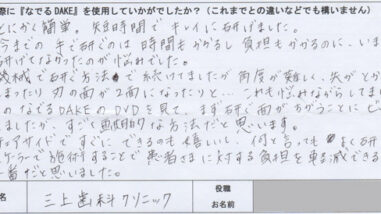 際に『なでるDAKE』を使用していかがでしたか？（これまでとの違いなどでも構いません）
とにかく簡単。短時間でキレイに研げました。
今までの手で研ぐのは時間もかかるし負担もかかるのに、いま
研げてなくなったりするのが悩みでした。
機械で研ぐ方法で続けてましたが角度が難しく、先がとが
まったり刃の面が2面になったりと…これも悩みながらしてまし
のなでるDAKEのDVDを見て、まず研ぐ面がちがうことにビ
しましたが、すごく画期的な方法だと思います。
チェアサイドですぐにできるのも嬉しいし、何と言ってもよく研
ケーラーで施術することで患者さまに対する負担を軽減できる
一番だと思いました。
名
三上歯科クリニック
役職
お名前